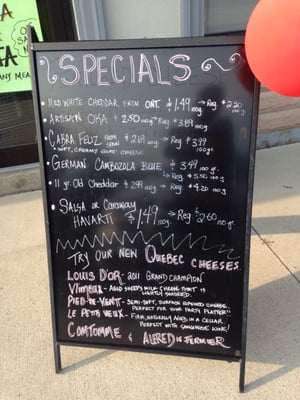 SPECIALS
MILD WHITE CHEDDAR FROM ONT. $1.49 100g → Reg $2.20 100g.
ARTISAN OKA $2.50 100g → Reg $3.89 100g.
CABRA FELIZ FROM SPAIN $2.89 100g. → Reg $3.99
* SOFT, CREAMY GOAT CHEESE 100g.
GERMAN CAMBOZOLA BLUE $3.99 100g
→ Reg $5.50 100g
11 yr Old Cheddar $2.99 100g → Reg $4.20 100g.
SALSA or Caraway
HAVARTI $1.49 100g → Reg $2.60 100g.
TRY OUR NEW QUEBEC CHEESES.
LOUIS D'OR - 2011 GRAND CHAMPION
LIGHTLY SMOKED.
PIED-DE-VENT - SEMI-SOFT, SURFACE RIPENED CHEESE
PERFECT FOR YOUR PARTY PLATTER
LE PETIT VEUX - FIRM, NATURALLY AGED IN A CELLAR.
COMTOMME & ALFRED LE FERMIER